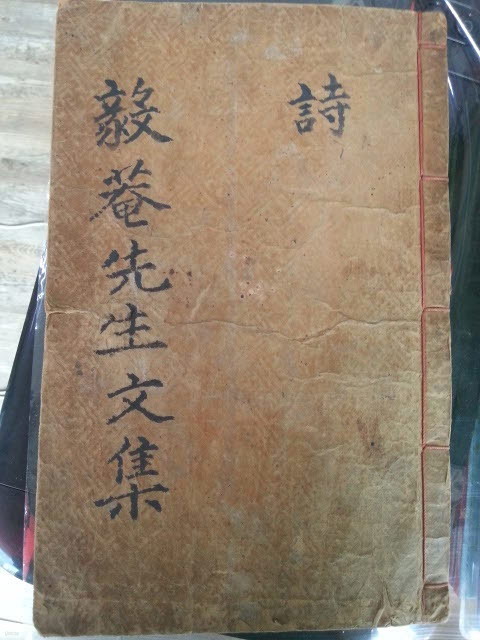 詩
毅菴先生文集